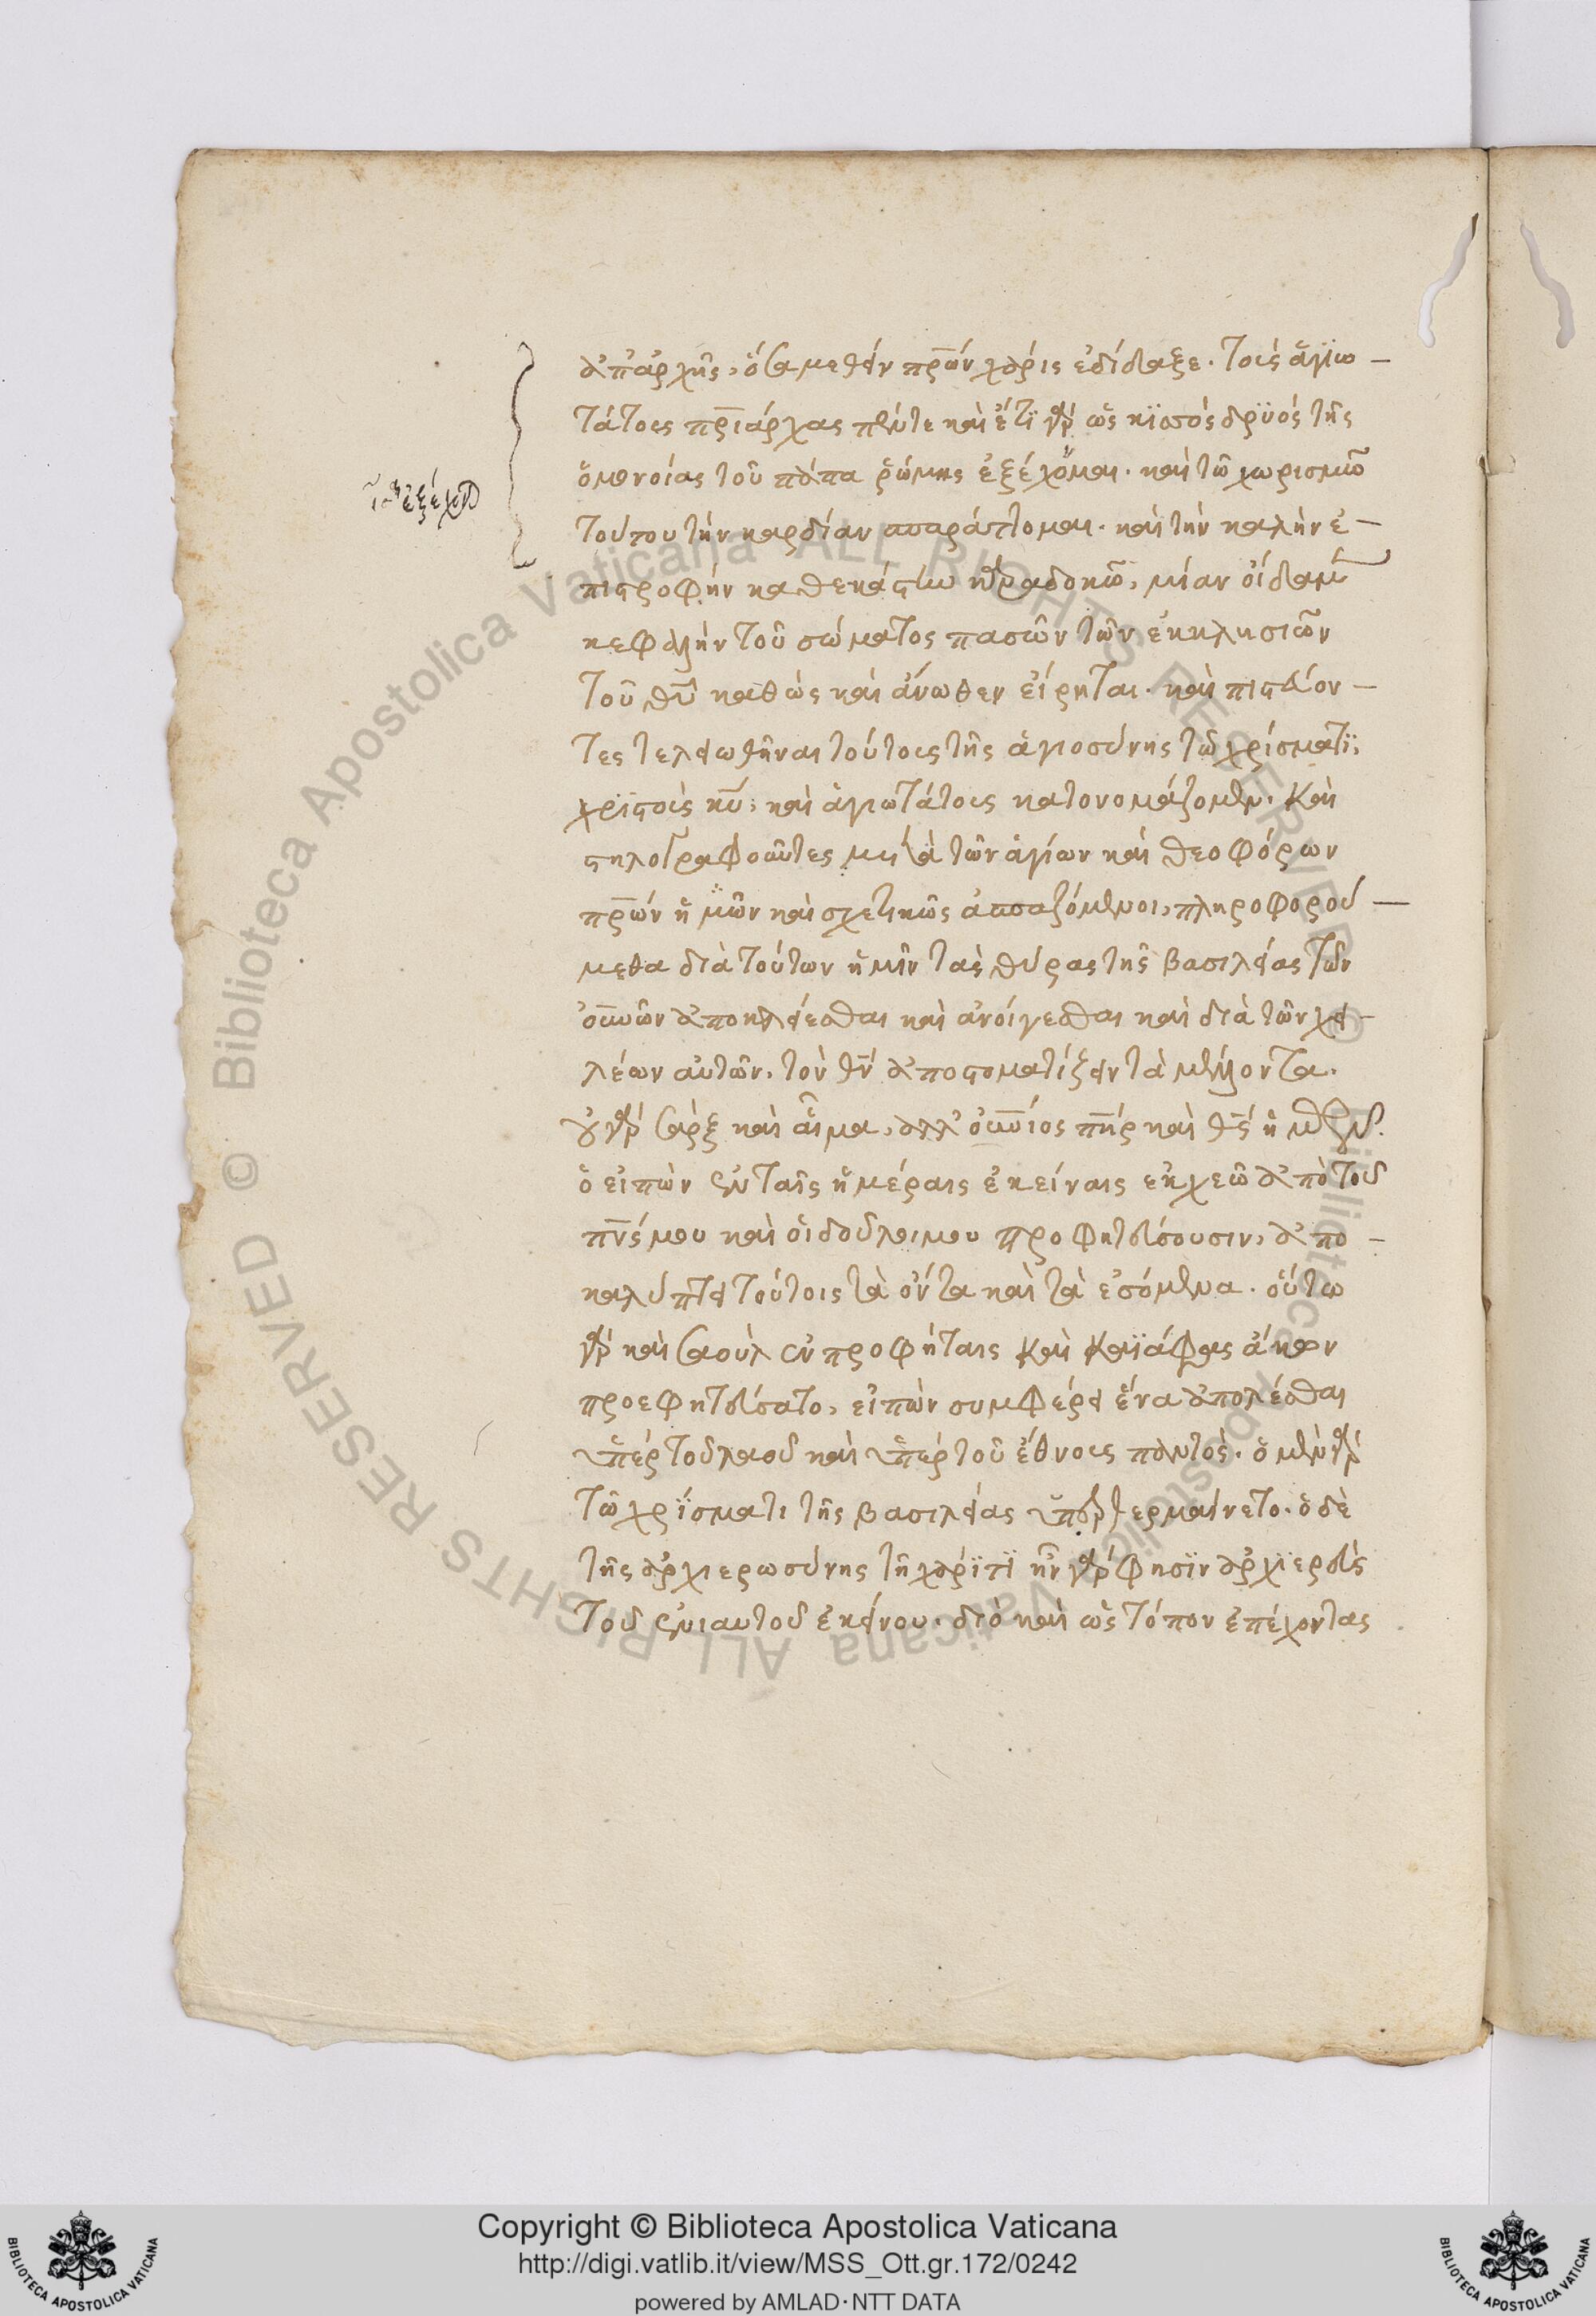 ἀπαρχῆς, ὅσα μεθεῖν πρῶν χάρις ἐδίδαξε. τοὺς ἁγϊω—
τάτους πριάρχας πέντε καὶ ἔτϊ γὰρ ὡς κϊσσὸς δρϋὸς τῆς
ὁμονοίας τοῦ πάπα ῥώμης ἐξέχομαι. καὶ τῶ χωρισμῶ
τούτου τὴν καρδίαν σπαράττομαι. καὶ τὴν καλὴν ἐ—
πιστροφὴν καθεκάστην καραδοκῶ, μίαν οἶδα μὲν
κεφαλὴν τοῦ σώματος πασῶν τῶν ἐκκλησιῶν
τοῦ θῦ καθὼς καὶ ἄνωθεν εἴρηται. καὶ πιστεύον—
τες τελειωθῆναι τούτους τῆς ἁγιοσύνης τῶ χρίσματϊ,
χρϊστοὺς κῦ, καὶ ἁγιωτάτους κατονομάζομεν. καὶ
στηλογραφοῦντες μετὰ τῶν ἁγίων καὶ θεοφόρων
πρῶν ἡμῶν καὶ σχετικῶς ἀσπαζόμενοι, πληροφορού—
μεθα διὰ τούτων ἡμῖν τὰς θύρας τῆς βασιλείας τῶν
οὐνῶν ἀποκλείεσθαι καὶ ἀνοίγεσθαι καὶ διὰ τῶν χει—
λέων αὐτῶν, τὸν θν ἀποστοματίζειν τὰ μέλλοντα.
οὐ γὰρ σὰρξ καὶ αἷμα, ἀλλ' οὐνιος πηρ καὶ θς ἡμῶν
ὁ εἰπὼν ἐν ταῖς ἡμέραις ἐκείναις ἐκχεῶ ἀπὸ τοῦ
πνς μου καὶ οἱ δοῦλοι μου προφητεύσουσιν, ἀπο—
καλύπτει τούτοις τὰ ὄντα καὶ τὰ ἐσόμενα. οὕτω
γὰρ καὶ σαοὺλ ἐν προφήταις καὶ καϊάφας ἄκων
προεφητεύσατο, εἰπὼν συμφέρει ἕνα ἀπολέσθαι
ὑπὲρ τοῦ λαοῦ καὶ ὑπὲρ τοῦ ἔθνους παντός. ὁ μὲν γὰρ
τῶ χρϊσματι τῆς βασιλείας ὑπερθερμαίνετο. ὁ δὲ
τῆς ἀρχιερωσύνης τῆ χάρϊτϊ ἦν γὰρ φησϊν ἀρχϊερεὺς
τοῦ ἐνιαυτοῦ ἐκείνου. διὸ καὶ ὡς τόπον ἐπέχοντας
Copyright © Biblioteca Apostolica Vaticana
http://digi.vatlib.it/view/MSS_Ott.gr.172/0242
powered by AMLAD·NTT DATA
BIBLIOTECA APOSTOLICA VATICANA
BIBLIOTECA APOSTOLICA VATICANA
© Biblioteca Apostolica Vaticana ALL RIGHTS RESERVED © Biblioteca Apostolica Vaticana ALL RIGHTS RESERVED